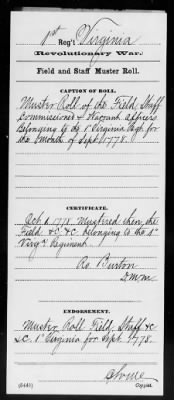 1st Reg't Virginia
Revolutionary War.
Field and Staff Muster Roll.
CAPTION OF ROLL.
Muster Roll of the Field, Staff
Commissioned & Warrant officers
Belonging to 1st Virginia Regt for
the Month of Sept. 1778.
CERTIFICATE.
Oct. 1778 Mustered then the
Field &C, &C. belonging to the 1st
Virga Regiment
Ro. Burton
D.M.M.
ENDORSEMENT.
Muster Roll Field, Staff &c
1st Virginia for Sept. 1778.
(544i)
Copyist.